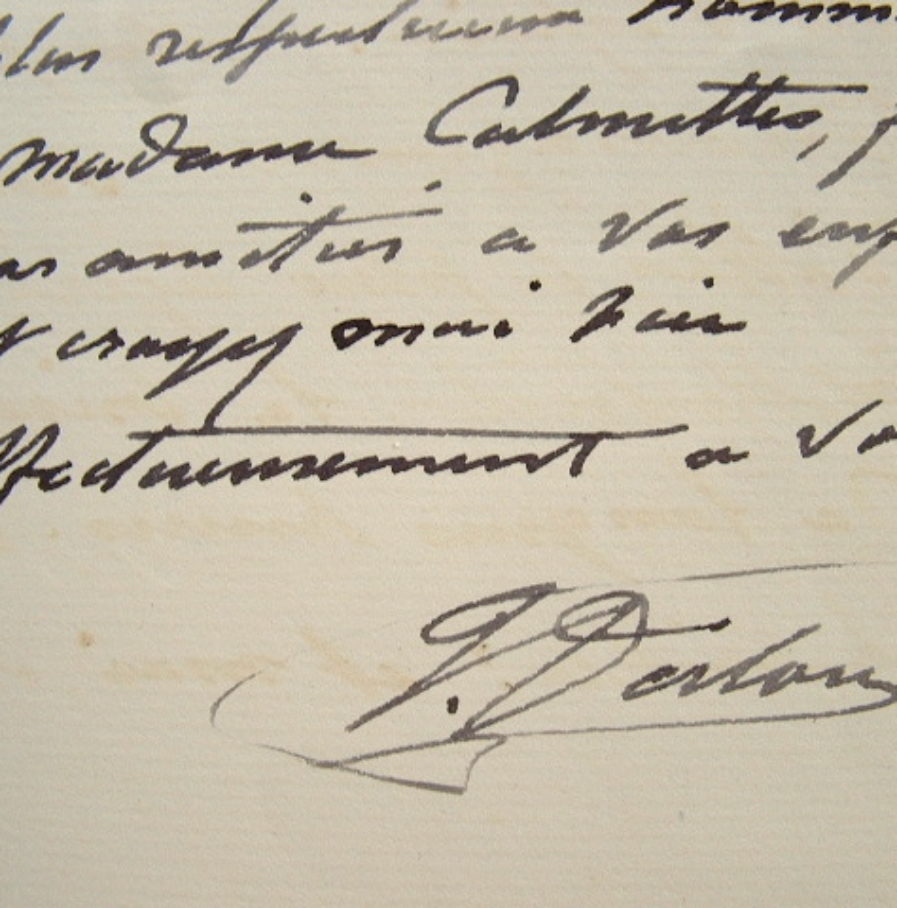 plus respectueux homm
Madame Calmettes,
amitiés a vos enf
croyez moi bien
ffectueusement a vo